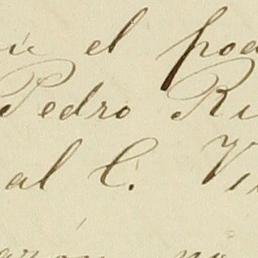 el pod
Pedro Ri
al C. Vi